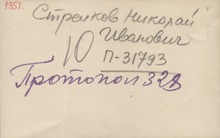 1951.
Стрелков Николай
Иванович
10
П-31793
Протокол 328